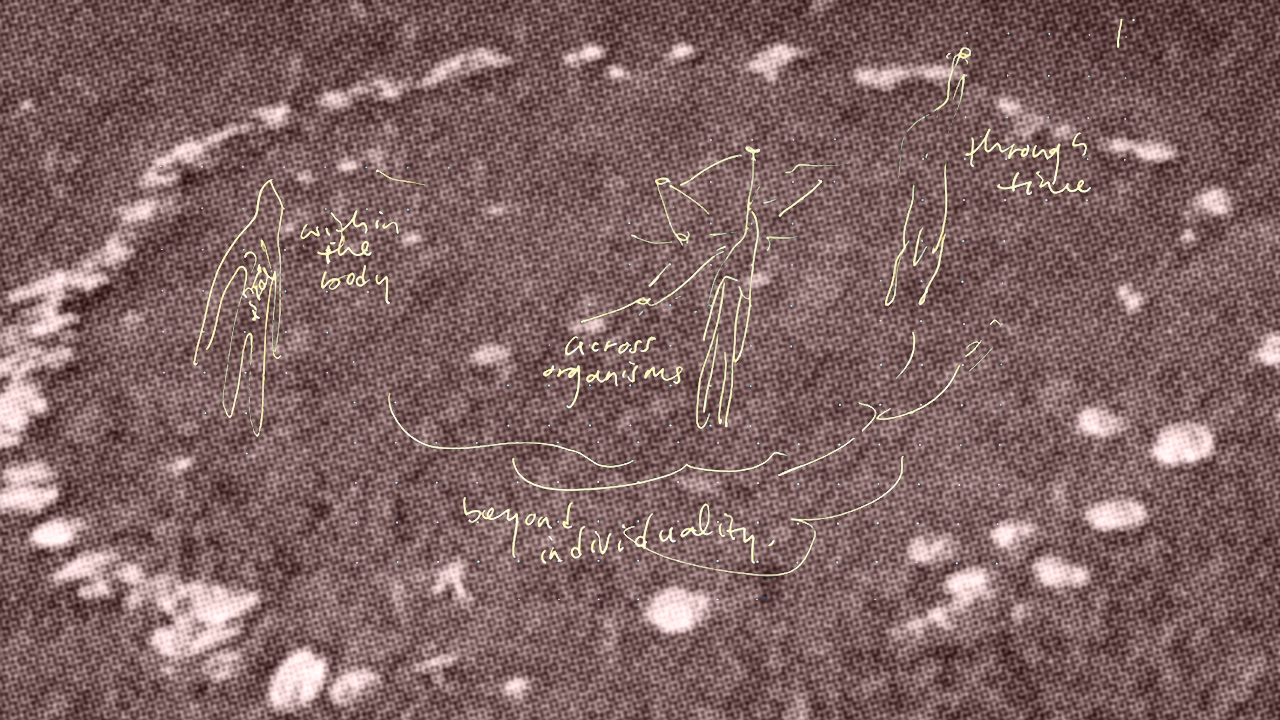 within
the
body
across
organisms
through
time
beyond
individuality.